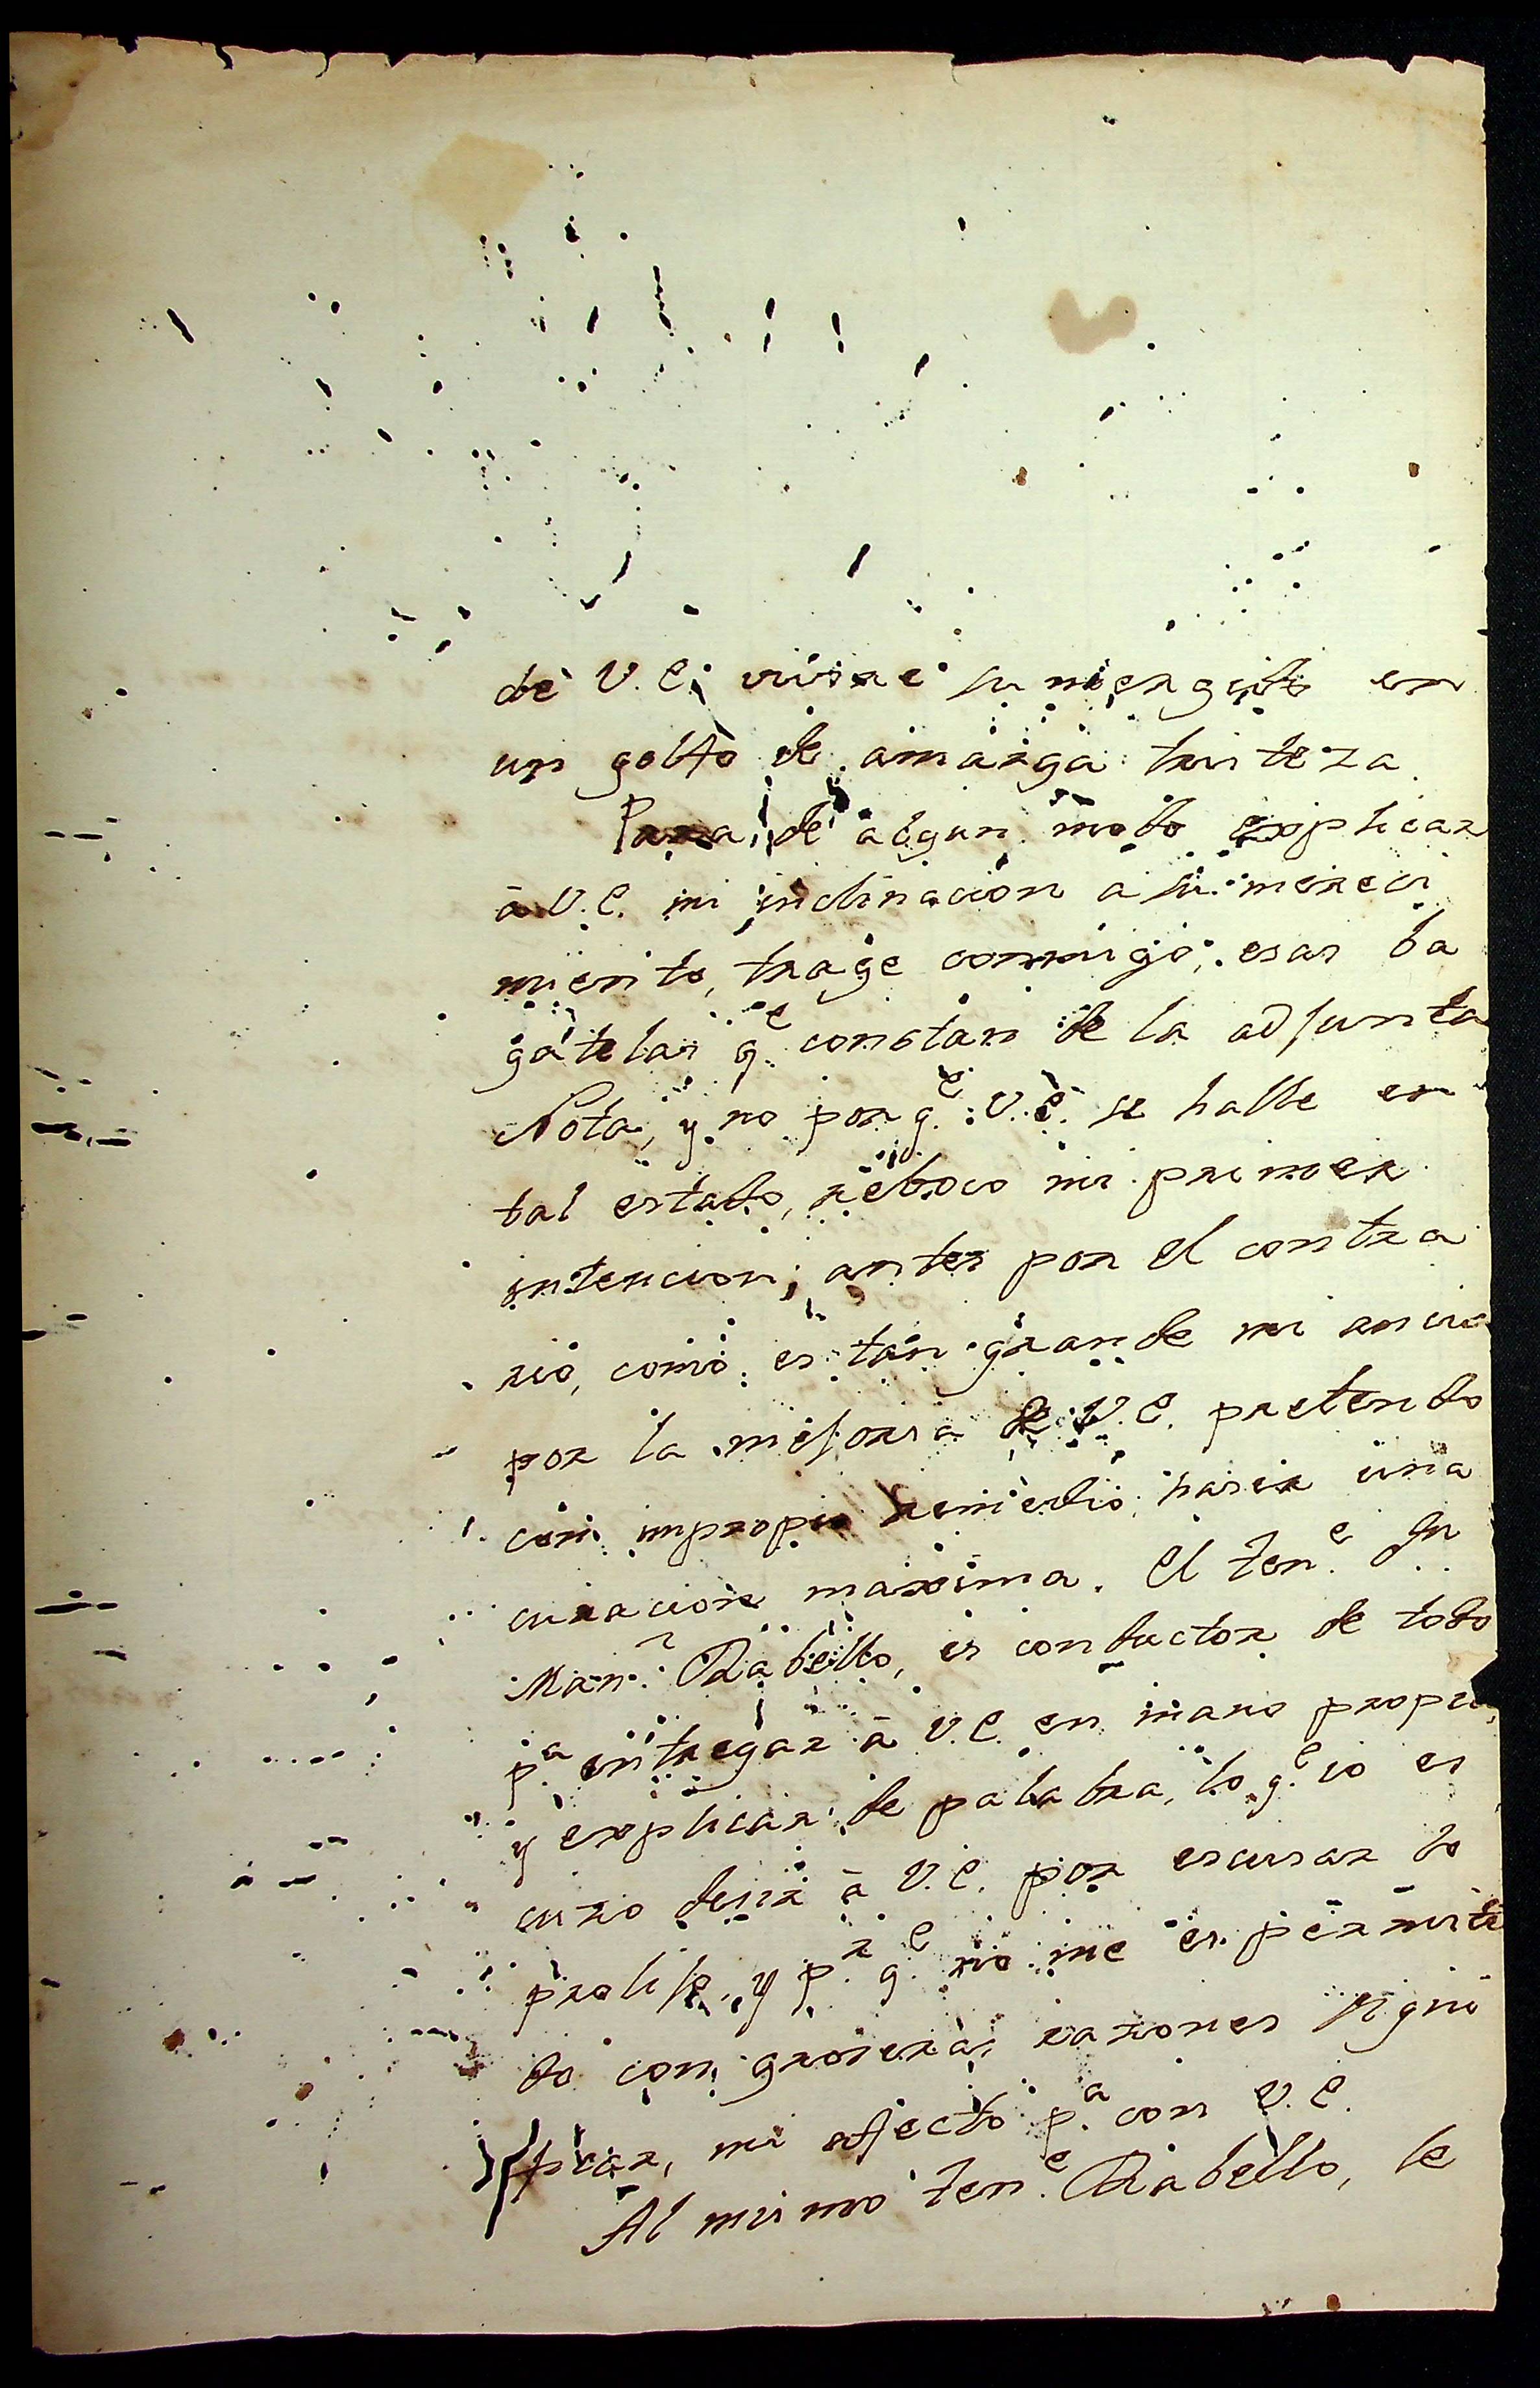 de V.E. vivire sumergido en
un golfo de amarga tristeza.
Para de algun modo explicar
â V.E. mi inclinacion a su mereci
miento, trage conmigo, esas ba
gatelas q.e constan de la adjunta
Nota, y no por q.e V.E. se halle en
tal estado, reboco mi primer
intencion; antes por el contra
rio, como es tan grande mi ancia
por la mejoria de V.E. pretendo
con impropio remedio, haser una
curacion maxima. El Ten.e Dn
Man.l Rabello, es conductor de todo
p.a entregar â V.E. en mano propia,
y explicar de palabra, lo q.e io es
cuso desir â V.E. por escusar lo
prolijo, y p.r q.e no me es permiti
do con groseras razones signi
ficar, mi afecto p.a con V.E.
Al mismo Ten.e Rabello, le